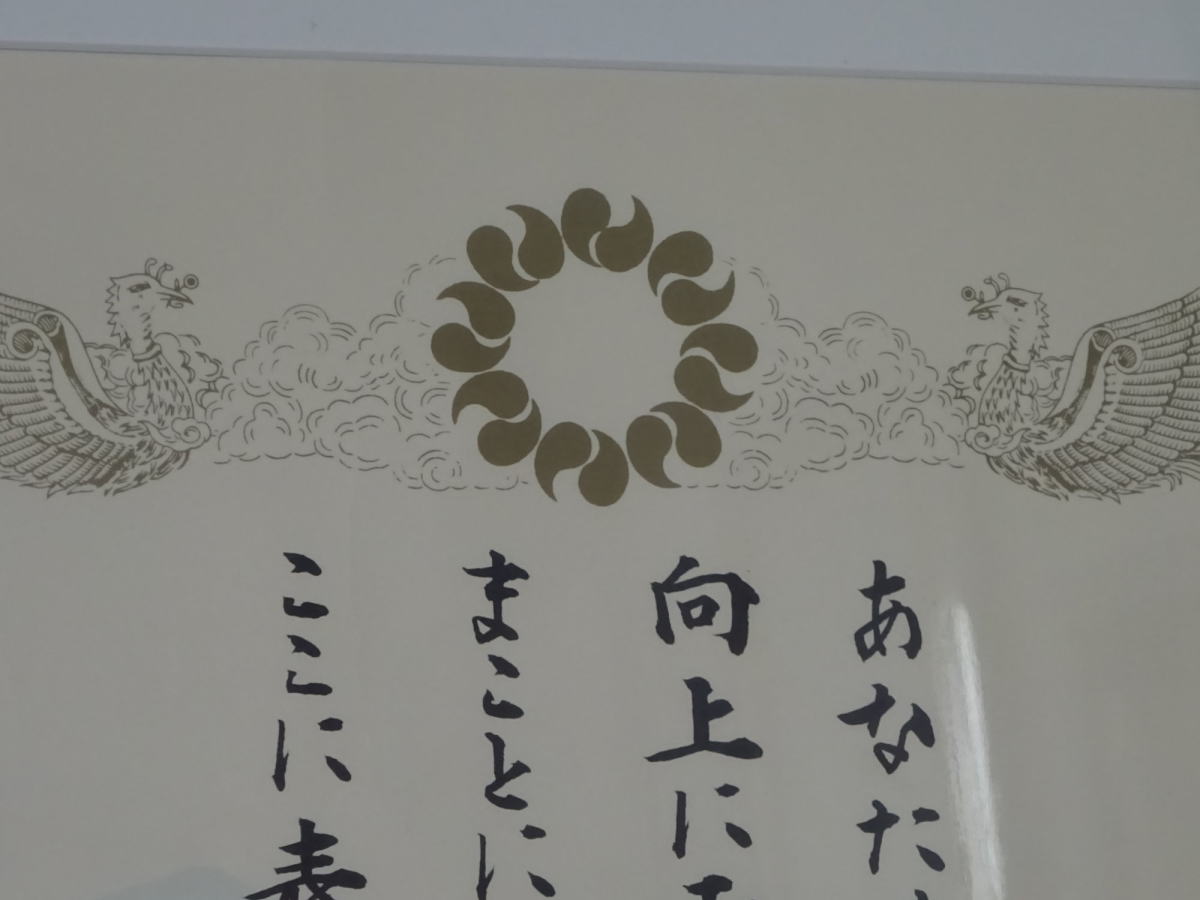 あなた
向上に
まことに
ここに表